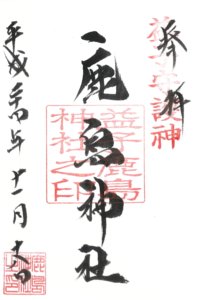 奉拝
益子守護神
鹿島神社
益子鹿島神社之印
平成二十四年十一月